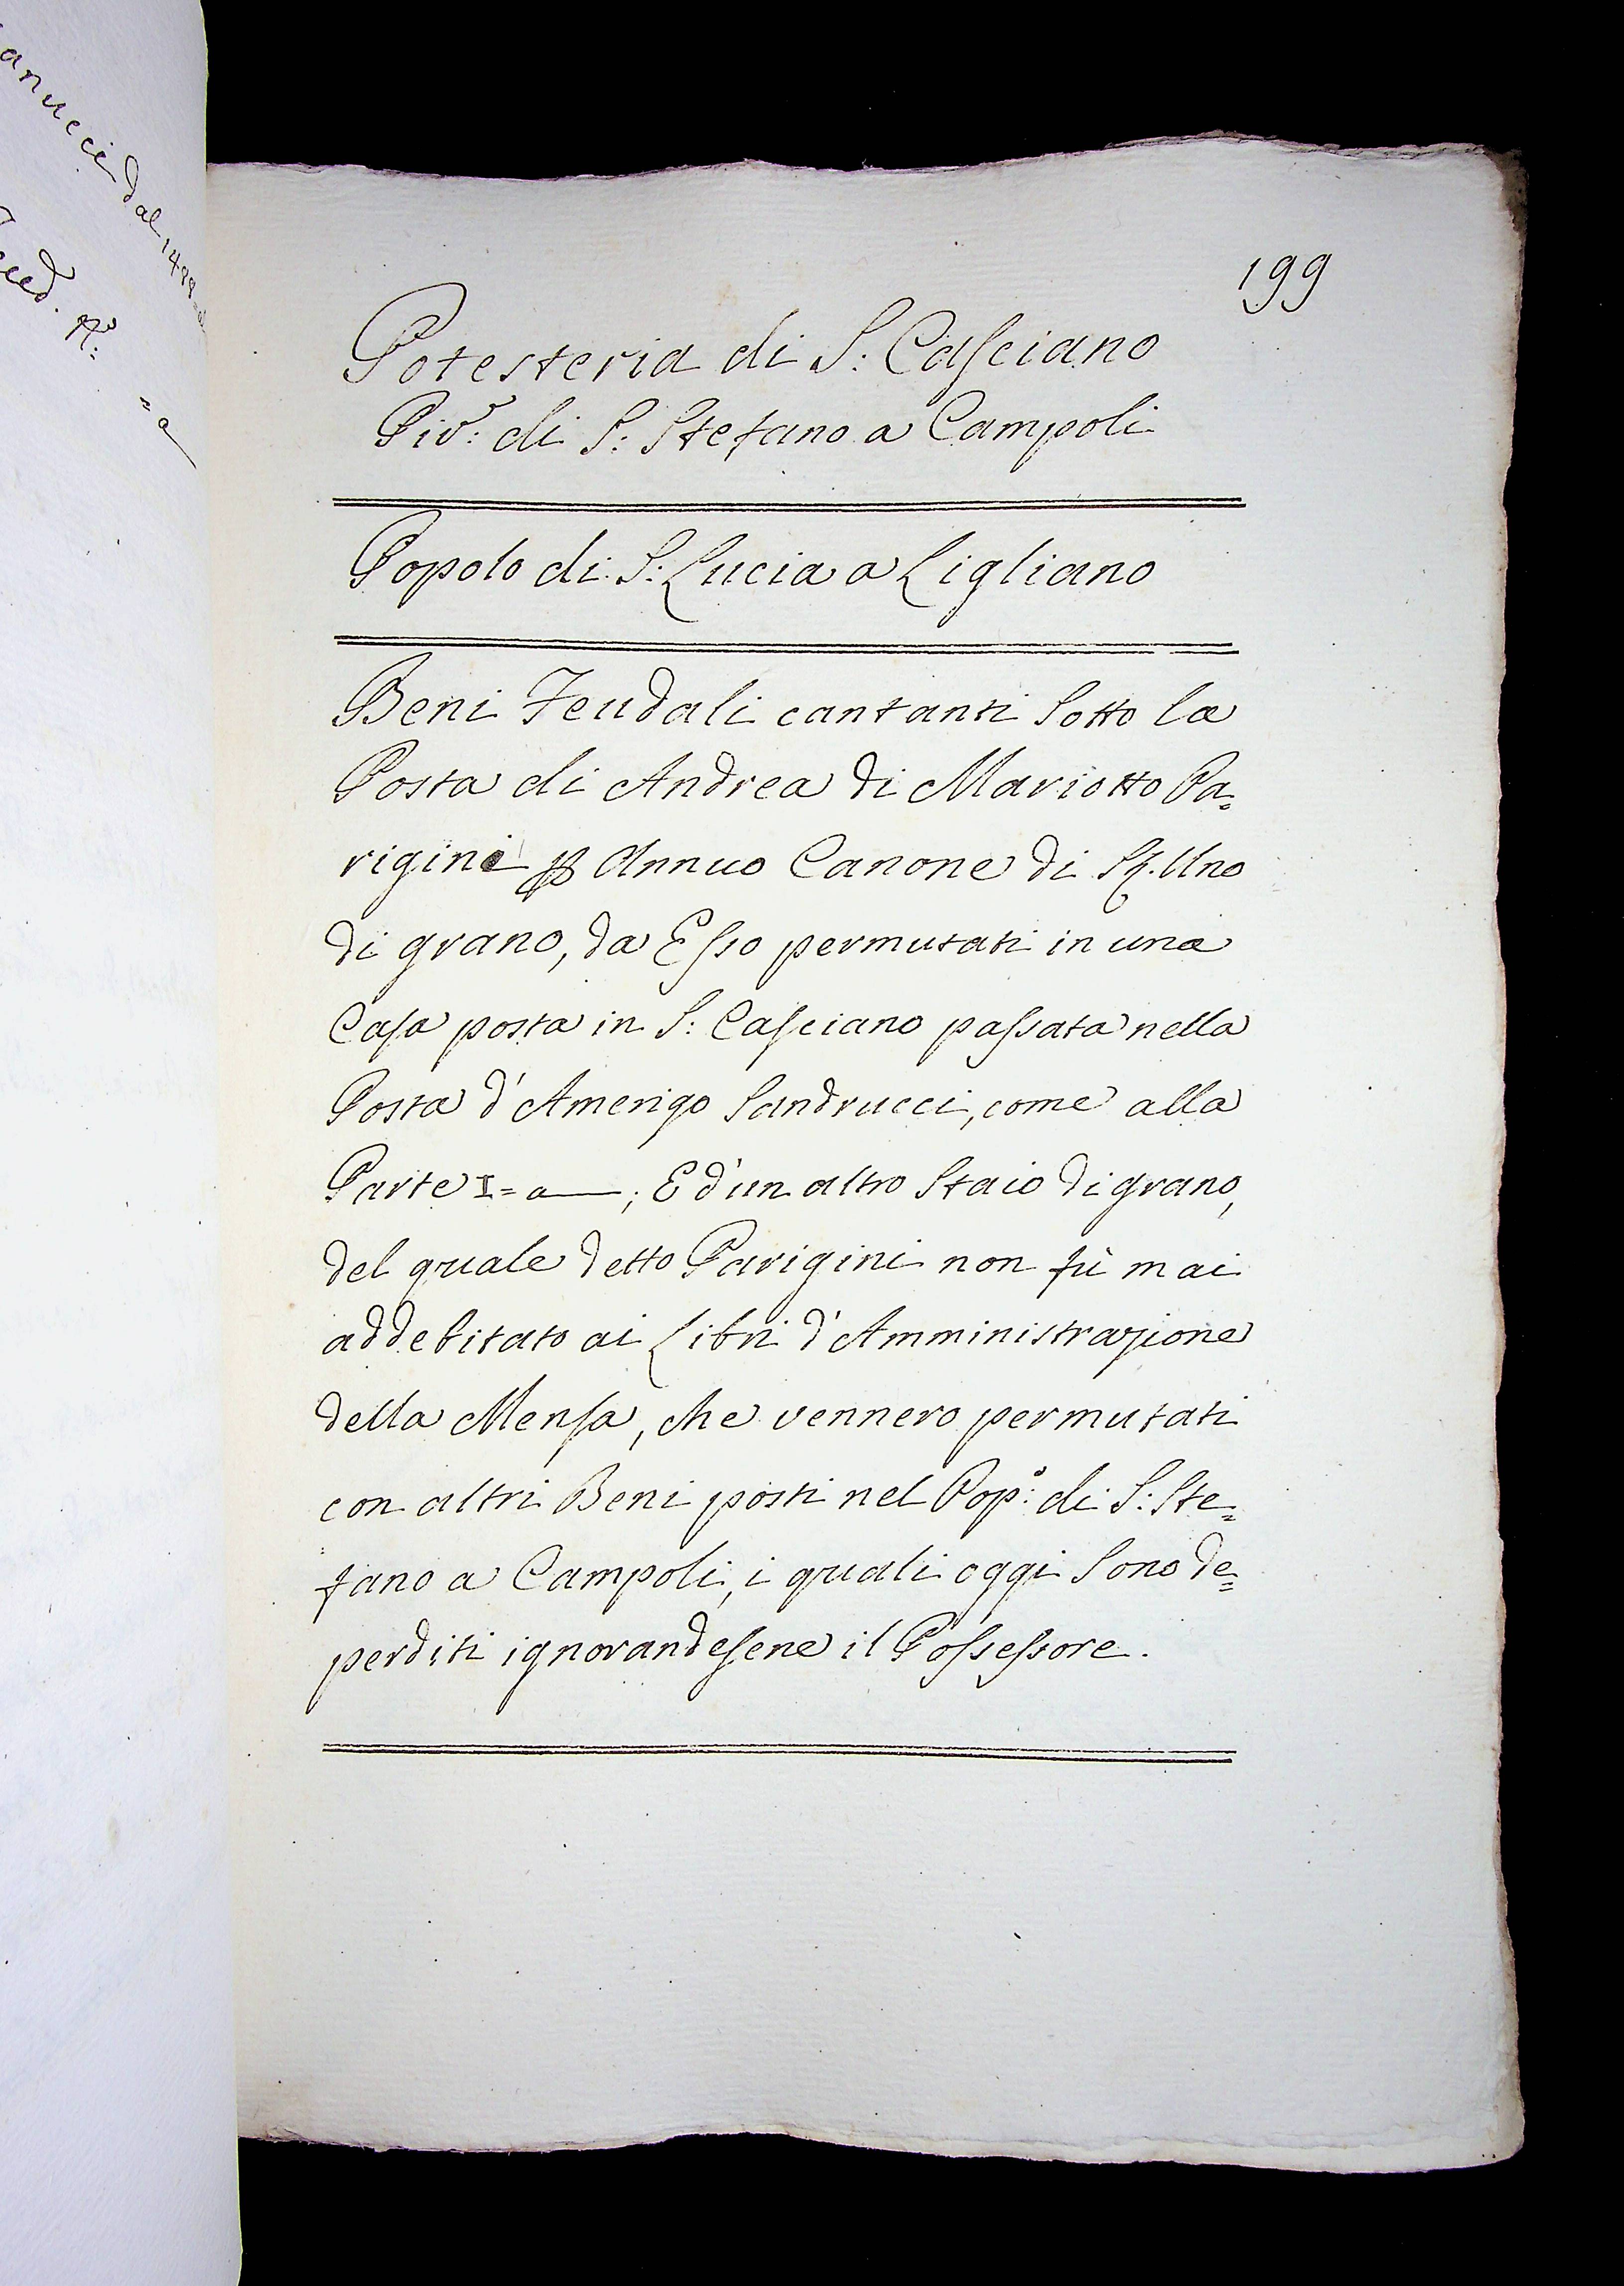 anucci dal 1489
ced. N.º:
= a
199
Potesteria di S: Casciano
Piv.º: di S: Stefano a Campoli
Popolo di S: Lucia a Ligliano
Beni Feudali cantanti sotto la
Posta di Andrea di Mariotto Pa=
rigini p Annuo Canone di St. Uno
di grano, da Esso permutati in una
Casa posta in S: Casciano passata nella
Posta d'Amerigo Sandrucci, come alla
Parte I=a; E d'un altro Staio di grano,
del quale detto Parigini non fù mai
addebitato ai Libri d'Amministrazione
della Mensa, che vennero permutati
con altri Beni posti nel Pop.º: di S: Ste=
fano a Campoli, i quali oggi sono de=
perditi ignorandesene il Possessore.